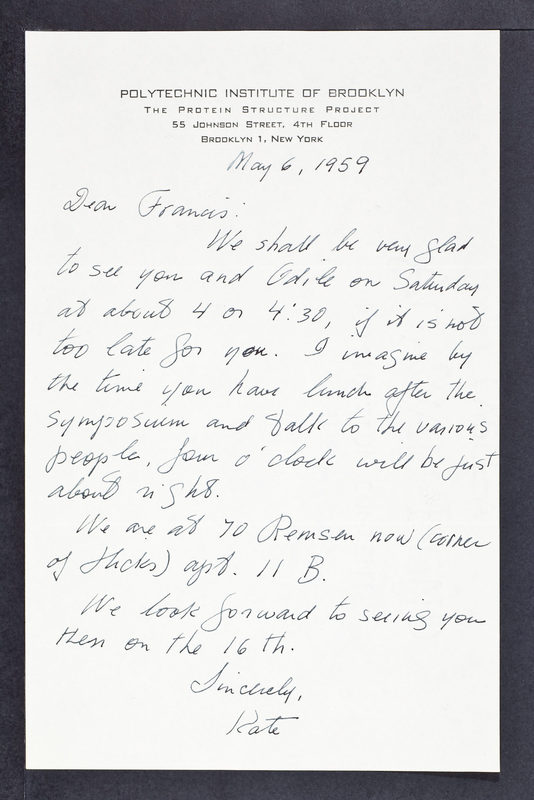 POLYTECHNIC INSTITUTE OF BROOKLYN
THE PROTEIN STRUCTURE PROJECT
55 JOHNSON STREET, 4TH FLOOR
BROOKLYN 1, NEW YORK
May 6, 1959
Dear Francis:
We shall be very glad
to see you and Odile on Saturday
at about 4 or 4:30, if it is not
too late for you. I imagine by
the time you have lunch after the
symposium and talk to the various
people, four o'clock will be just
about right.
We are at 70 Remsen now (corner
of Hicks) apt. 11 B.
We look forward to seeing you
then on the 16 th.
Sincerely,
Kate